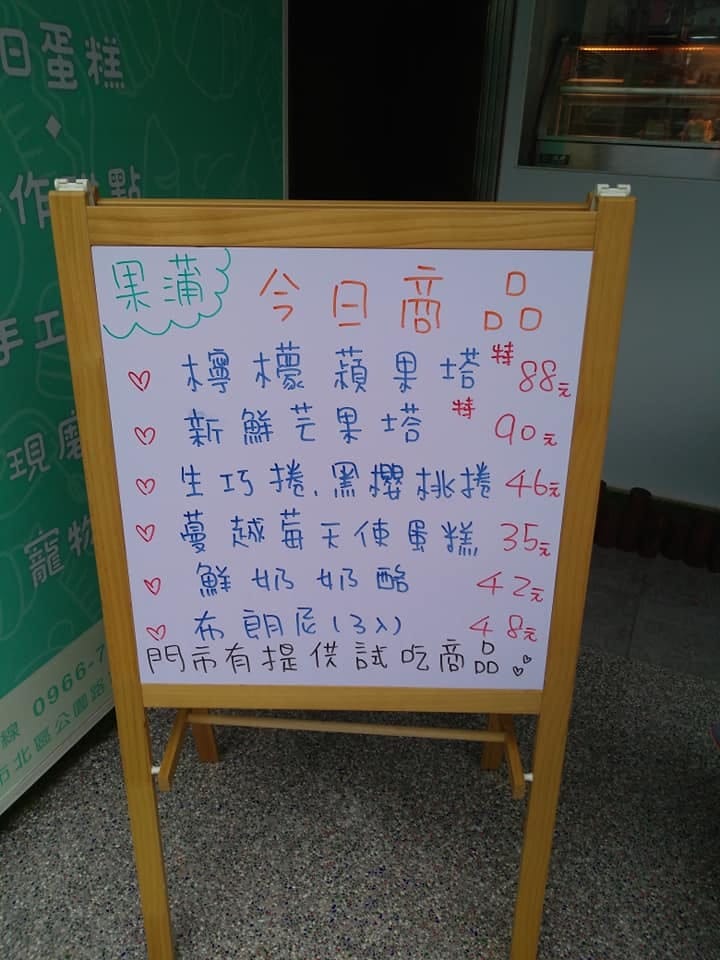 日蛋糕
作 點
手工
現磨
寵物
線 0966-7
市北區公園路
果蒲
今日商品
檸檬蘋果塔 特 88元
新鮮芒果塔 特 90元
生巧捲、黑櫻桃捲 46元
蔓越莓天使蛋糕 35元
鮮奶奶酪 42元
布朗尼(3入) 48元
門市有提供試吃商品